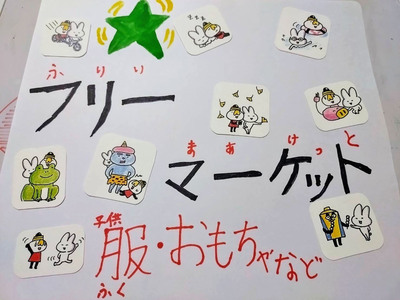 ふりい
フリー
まあけっと
マーケット
子供
服・おもちゃなど
ふく